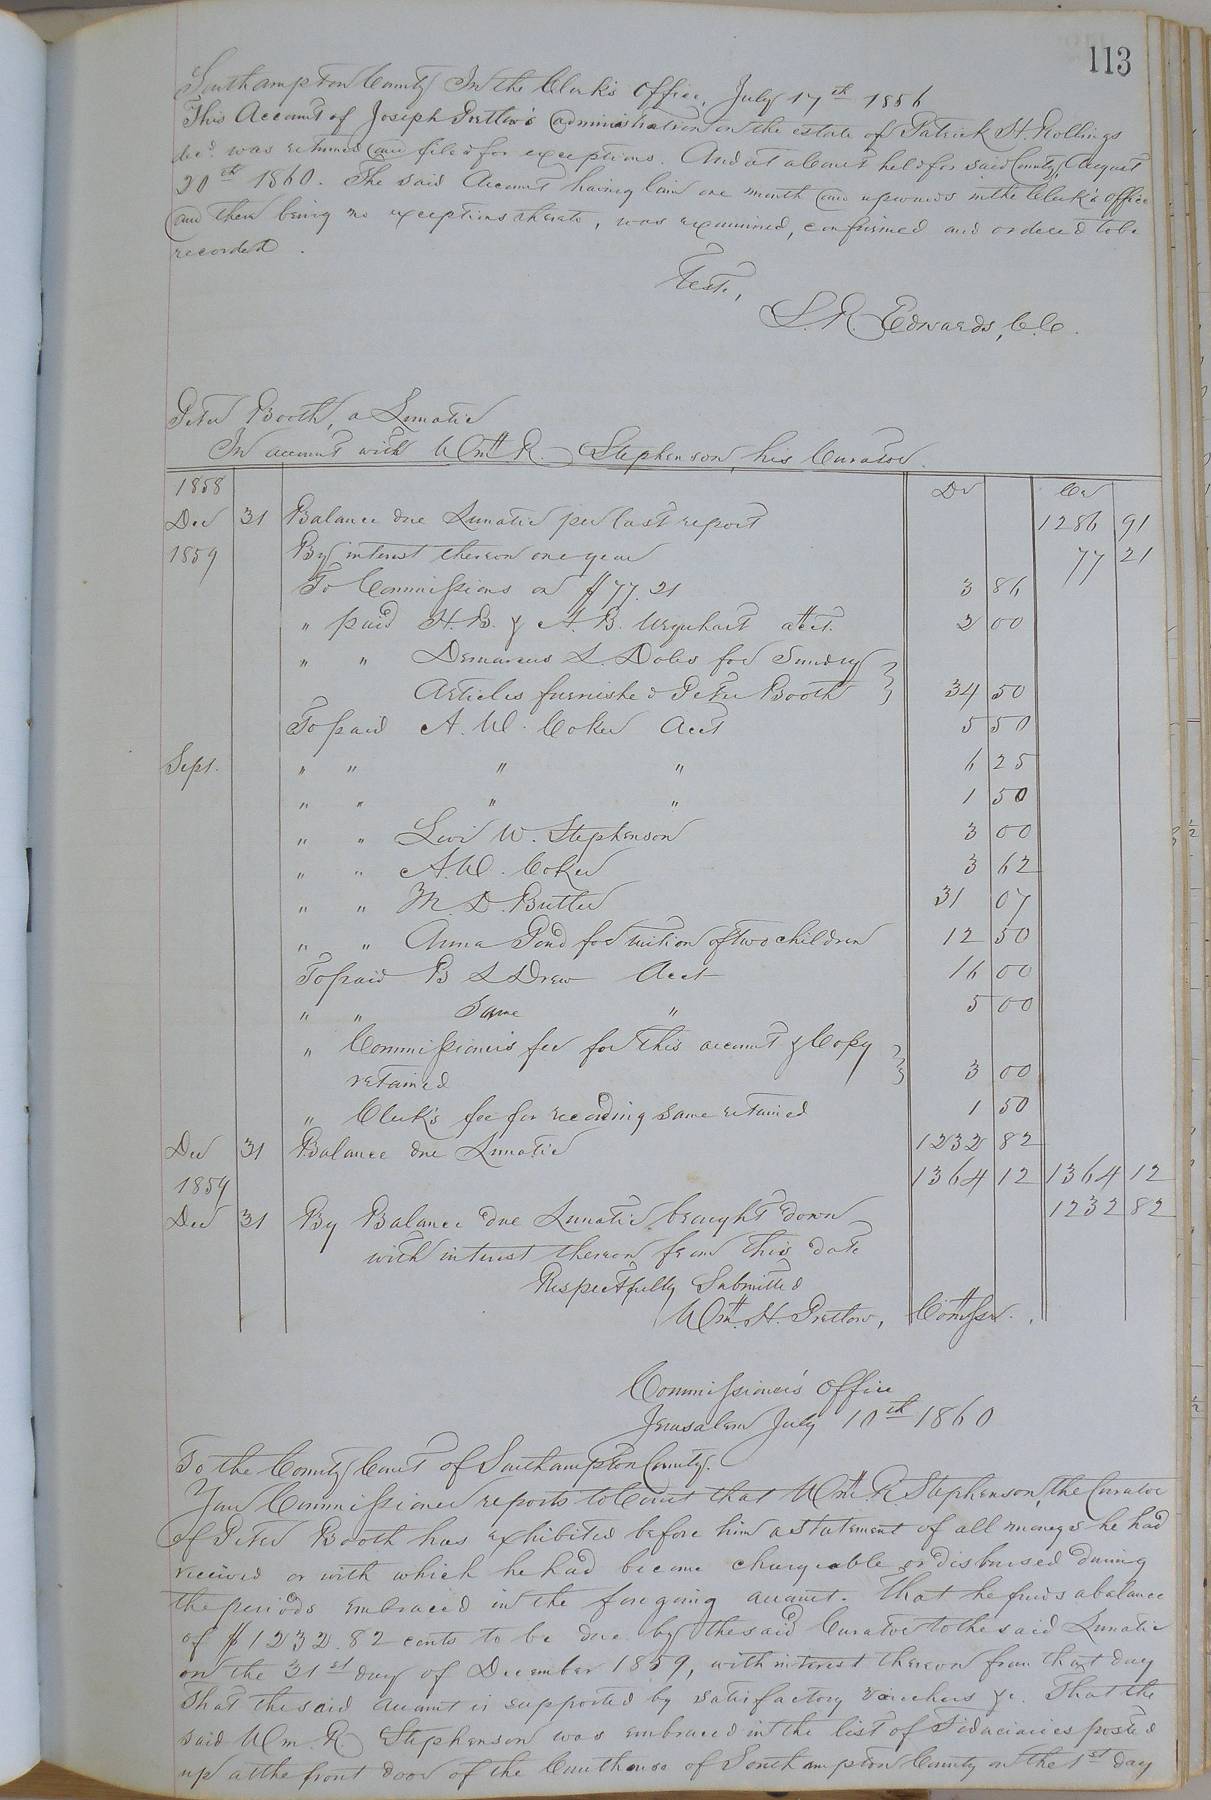 113
Southampton County In the Clerk's Office, July 17th 1856
This Account of Joseph Pretlow's administration on the estate of Patrick H. Rollings
decd. was returned and filed for exceptions. And at a Court held for said County, August
20th 1860. The said Account having lain one month and upwards in the Clerk's office
and there being no exceptions thereto, was examined, confirmed and ordered to be
recorded.
Teste,
L. R. Edwards, C.C.
Peter Booth, a Lunatic
In account with Wm. R. Stephenson, his Curator.
1858 Dr Cr
Dec 31 Balance due Lunatic per last report 1286 91
1859 By interest thereon one year 77 21
To Commissions on $77.21 3 86
" paid H. B. & A. B. Urquhart acct. 2 00
" " Demarcus L. Doles for Sundry
Articles furnished Peter Booth 34 50
To paid A. W. Coker Acct 5 50
Sept. " " " " 6 25
" " " " 1 50
" " Levi W. Stephenson 3 00
" " A. W. Coker 3 62
" " M. D. Butler 31 07
" " Anna Pond for tuition of two children 12 50
To paid B L Drew Acct 16 00
" " Same " 5 00
" Commissioner's fee for this account & Copy
retained 3 00
" Clerk's fee for recording same retained 1 50
Dec 31 Balance due Lunatic 1232 82
1859 1364 12 1364 12
Dec 31 By Balance due Lunatic brought down 1232 82
with interest thereon from this date
Respectfully Submitted
Wm. H. Pretlow, Commssr.
Commissioner's Office
Jerusalem July 10th 1860
To the County Court of Southampton County.
Your Commissioner reports to Court that Wm. R Stephenson, the Curator
of Peter Booth has exhibited before him a statement of all moneys he had
received or with which he had become chargeable or disbursed during
the periods embraced in the foregoing account. That he finds a balance
of $1232.82 cents to be due by the said Curator to the said Lunatic
on the 31st day of December 1859, with interest thereon from that day
That the said account is supported by satisfactory vouchers &c. That the
said Wm. R Stephenson was embraced in the list of Fiduciaries posted
up at the front door of the Courthouse of Southampton County on the 1st day